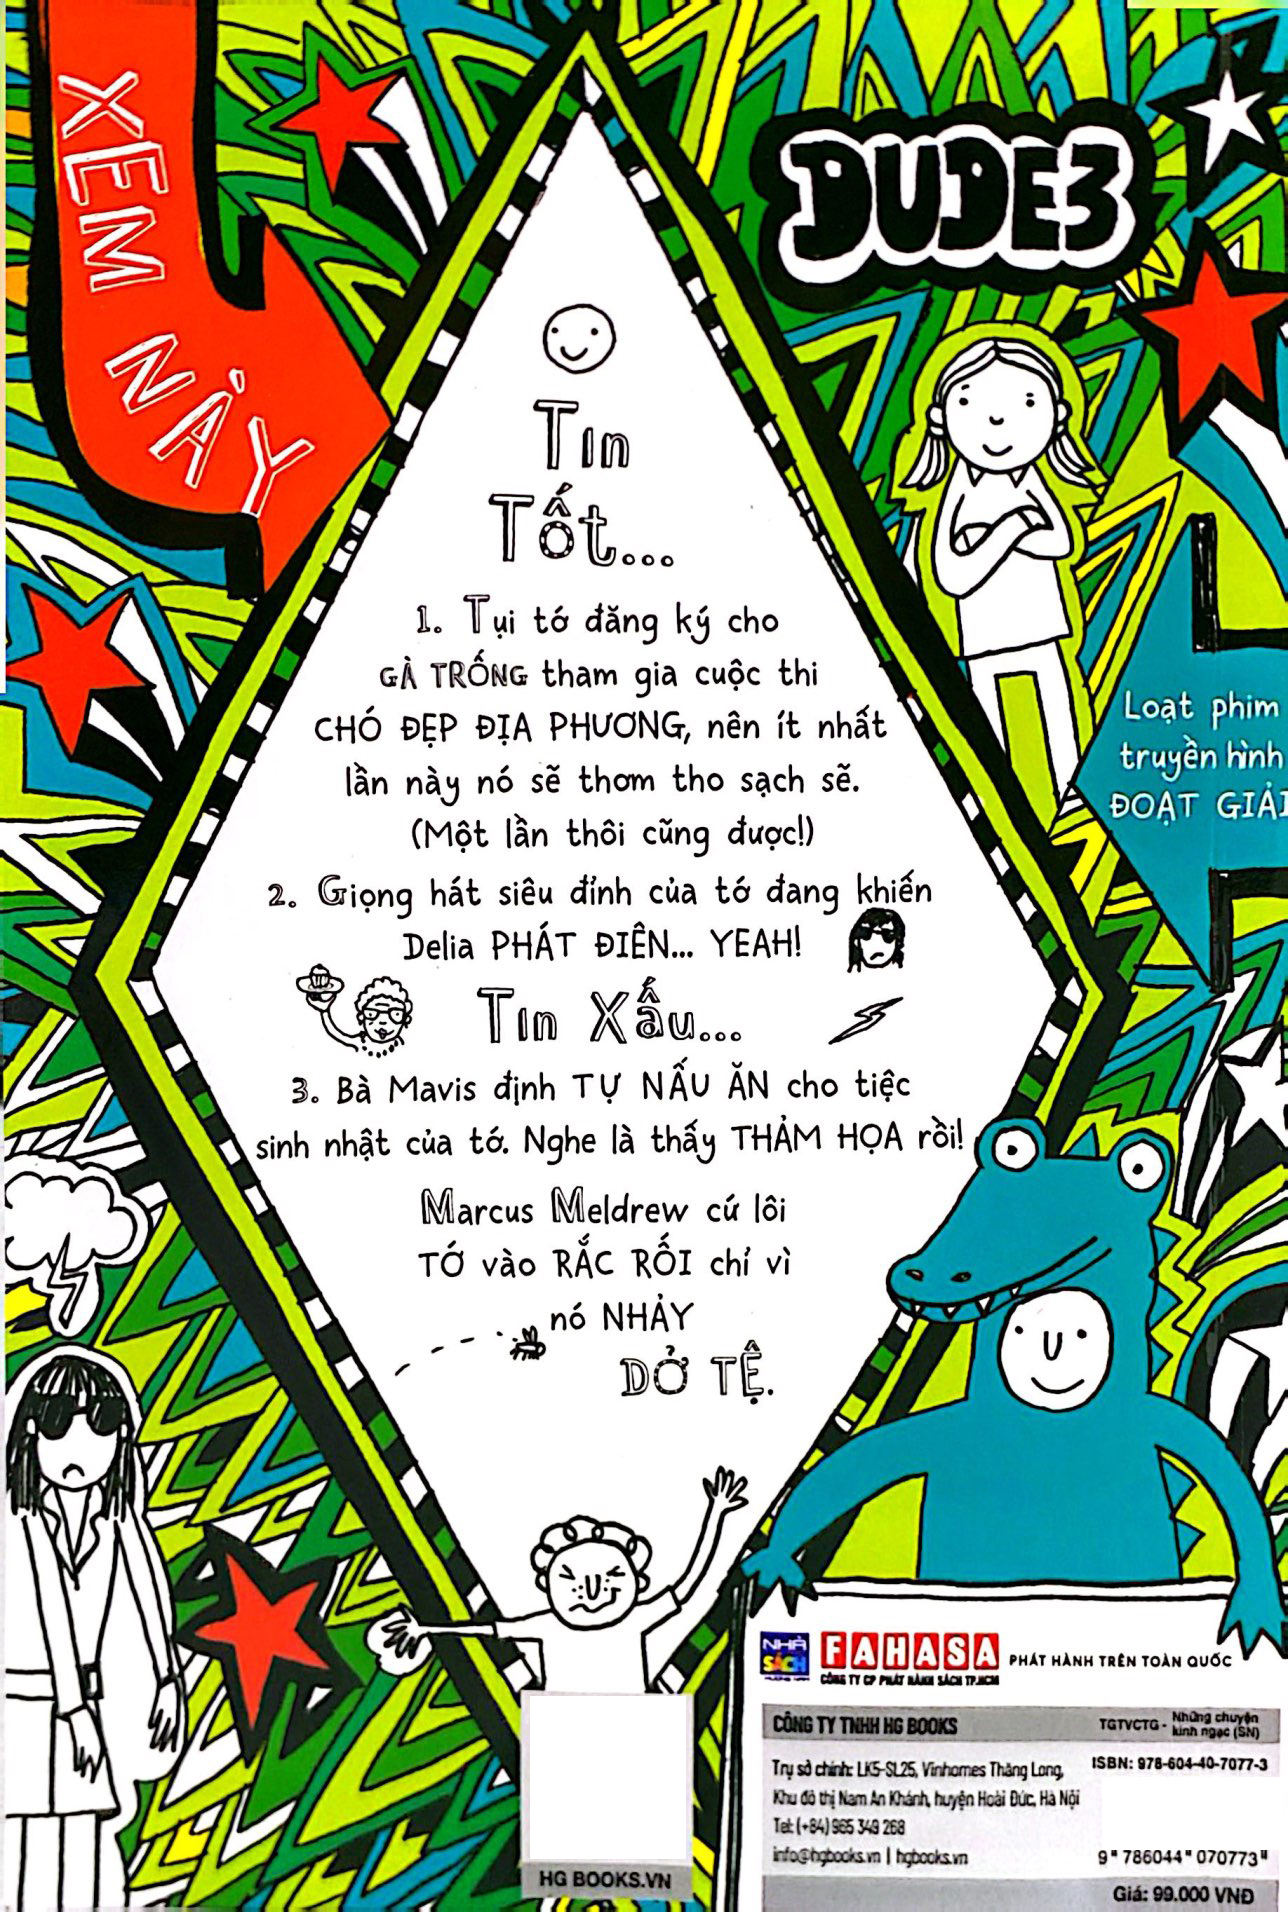 XEM NÀY
DUDE3
Tin
Tốt...
1. Tụi tớ đăng ký cho
GÀ TRỐNG tham gia cuộc thi
CHÓ ĐẸP ĐỊA PHƯƠNG, nên ít nhất
lần này nó sẽ thơm tho sạch sẽ.
(Một lần thôi cũng được!)
2. Giọng hát siêu đỉnh của tớ đang khiến
Delia PHÁT ĐIÊN... YEAH!
Tin Xấu...
3. Bà Mavis định TỰ NẤU ĂN cho tiệc
sinh nhật của tớ. Nghe là thấy THẢM HỌA rồi!
Marcus Meldrew cứ lôi
TỚ vào RẮC RỐI chỉ vì
nó NHẢY
DỞ TỆ.
Loạt phim
truyền hình
ĐOẠT GIẢI
NHÀ
SÁCH
FAHASA
CÔNG TY CP PHÁT HÀNH SÁCH TP.HCM
PHÁT HÀNH TRÊN TOÀN QUỐC
CÔNG TY TNHH HG BOOKS
TGTVCTG - Những chuyện
kinh ngạc (SN)
Trụ sở chính: LK5-SL25, Vinhomes Thăng Long,
Khu đô thị Nam An Khánh, huyện Hoài Đức, Hà Nội
Tel: (+84) 965 349 268
info@hgbooks.vn | hgbooks.vn
ISBN: 978-604-40-7077-3
9 786044 070773
Giá: 99.000 VNĐ
HG BOOKS.VN